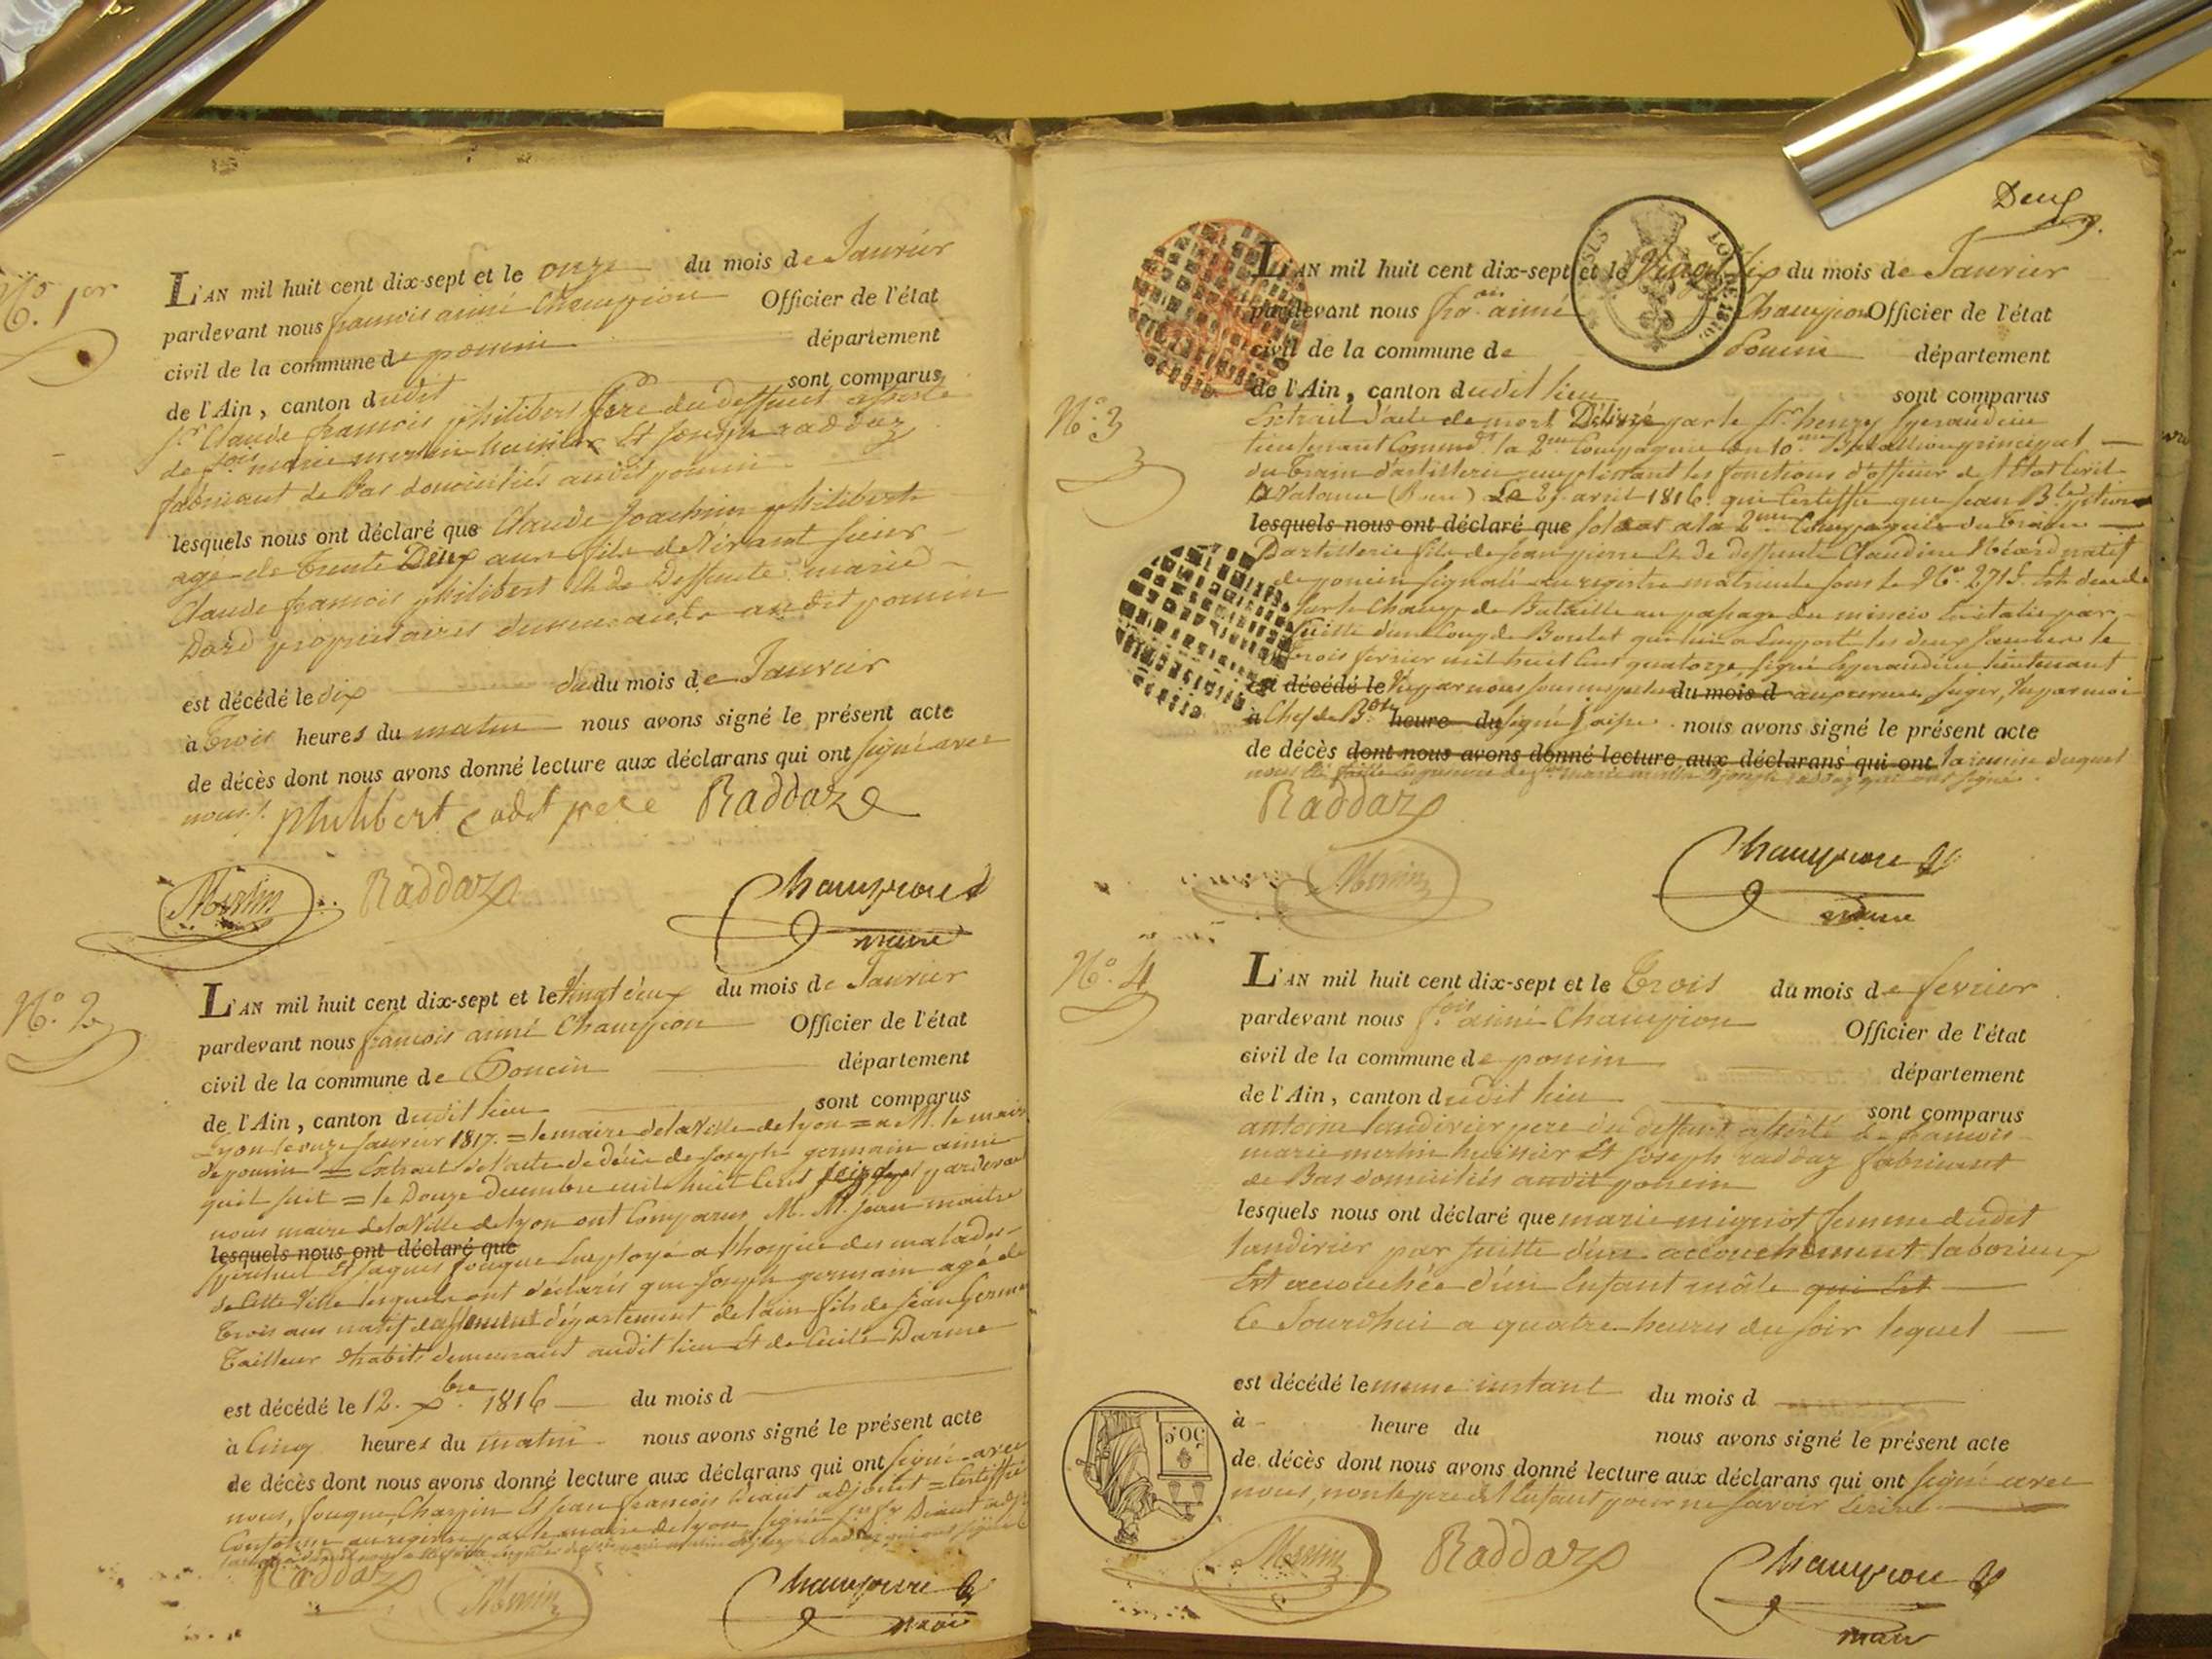 N.o 1er
L'AN mil huit cent dix-sept et le onze du mois de Janvier
pardevant nous francois aimé Champion Officier de l'état
civil de la commune de poncin département
de l'Ain, canton dudit sont comparus
Sr Claude francois philibert pere du deffunt assisté
de fois marie merlin huissier Et Joseph raddaz
fabricant de Bas domiciliés audit poncin
lesquels nous ont déclaré que Claude Joachim philibert
age de trente Deux ans fils de vivant sieur
Claude francois philibert Et de Deffunte marie
Dard proprietaires demeurants audit poncin
est décédé le dix du mois de Janvier
à trois heures du matin nous avons signé le présent acte
de décès dont nous avons donné lecture aux déclarans qui ont signé avec
nous
philibert cadet pere Raddaz
Merlin Raddaz Champion
maire
N.o 2
L'AN mil huit cent dix-sept et le vingt deux du mois de Janvier
pardevant nous francois aimé Champion Officier de l'état
civil de la commune de Poncin département
de l'Ain, canton dudit lieu sont comparus
Lyon le onze Janvier 1817. = le maire de la Ville de lyon = a M. le maire
de poncin = Extrait de l'acte de décès de Joseph germain ainsi
quil suit = le Douze Decembre mil huit Cent seize pardevant
nous maire de la Ville de lyon ont Comparus M. M. Jean maitre
lesquels nous ont déclaré que
spirituel Et Jaques fouque Employé a l'hospice des malades
de Cette Ville lesquels ont déclarés que Joseph germain agé de
trois ans natif de département de lain fils de Jean Germain
Tailleur d'habits demeurant audit lieu Et de Cecile Darme
est décédé le 12. Xbre 1816 du mois d
à Cinq heures du matin nous avons signé le présent acte
de décès dont nous avons donné lecture aux déclarans qui ont signé avec
nous, fouque, Et Jean francois adjoint = Certiffié
Conforme au registre par le maire de lyon signé
Raddaz Merlin Champion
maire
Deux
L'AN mil huit cent dix-sept et le Vingt Six du mois de Janvier
pardevant nous frois aimé Champion Officier de l'état
civil de la commune de Poncin département
de l'Ain, canton dudit lieu sont comparus
N.o 3
Extrait d'acte de mort Délivré par le Sr henry
lieutenant Commdt la 2me Compagnie du 10.me Batallion principal
du train d'artillerie remplissant les fonctions d'officier de l'Etat Civil
a Valance le 25 avril 1816. qui Certiffie que Jean Bte
lesquels nous ont déclaré que soldat a la 2me Compagnie du train
D'artillerie fils de Jean pierre Et de deffunte Claudine natif
de poncin signalé au registre matricule sous le No. 2715. Est decedé
sur le Champ de Bataille au passage du mincio En italie par
suitte d'un Coup de Boulet qui lui a Emporté les deux Jambes le
trois fevrier mil huit Cent quatorze, signé lieutenant
est décédé le Vu par nous sousinspecteur du mois d aux revues, vu par moi
à Chef de Bon heure du signé nous avons signé le présent acte
de décès dont nous avons donné lecture aux déclarans qui ont la remise duquel
nous
Raddaz
Merlin Champion
maire
N.o 4
L'AN mil huit cent dix-sept et le trois du mois de fevrier
pardevant nous fois aimé Champion Officier de l'état
civil de la commune de poncin département
de l'Ain, canton dudit lieu sont comparus
antoine landivier pere du deffunt assisté de francois
marie merlin huissier Et Joseph raddaz fabricant
de Bas domiciliés audit poncin
lesquels nous ont déclaré que marie mignot femme dudit
landivier par suitte d'un accouchement laborieux
Est accouchée d'un Enfant mâle qui Est
Ce Jourdhui a quatre heures du soir lequel
est décédé le meme instant du mois d
à heure du nous avons signé le présent acte
de décès dont nous avons donné lecture aux déclarans qui ont signé avec
nous, non le pere de l'Enfant pour ne savoir Ecrire
50C
Merlin Raddaz Champion
maire